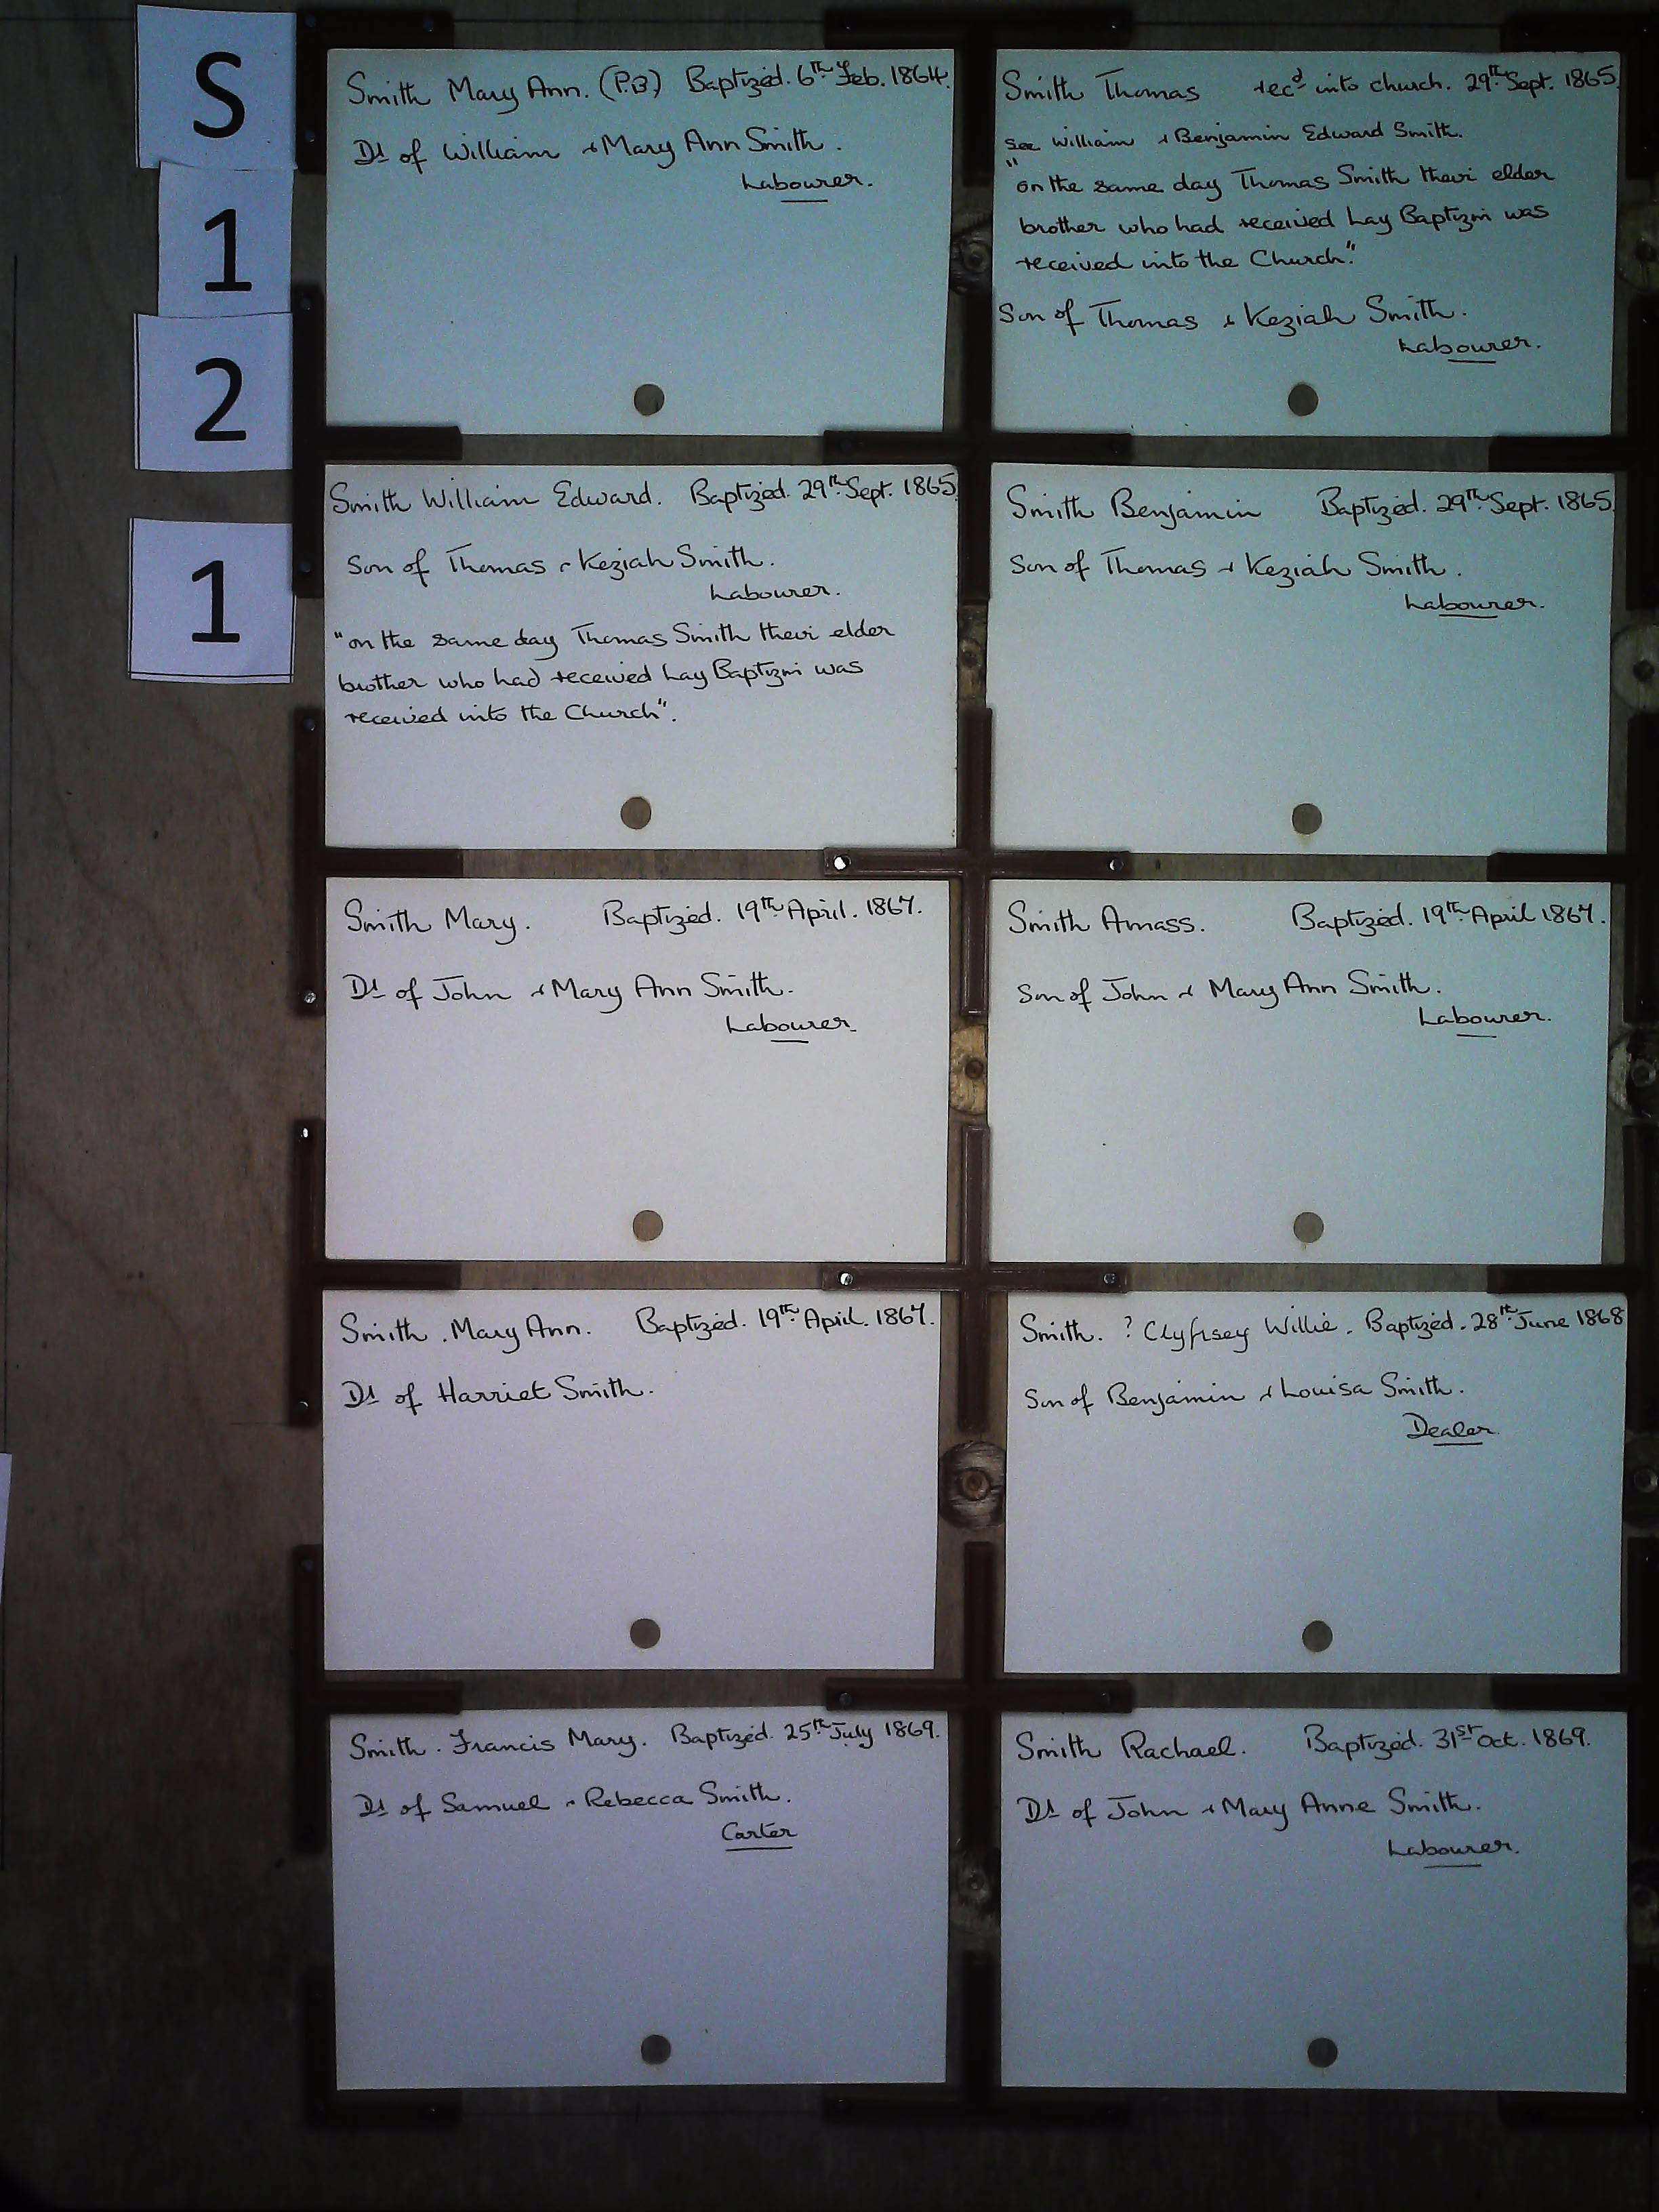 S
1
2
1
Smith Mary Ann. (P.B) Baptized. 6th Feb. 1864.
Dt of William & Mary Ann Smith.
Labourer.
Smith Thomas recd into church. 29th Sept. 1865
See William & Benjamin Edward Smith.
"on the same day Thomas Smith thevi elder
brother who had received Lay Baptizm was
received into the Church".
Son of Thomas & Keziah Smith.
Labourer.
Smith William Edward. Baptized. 29th Sept. 1865
Son of Thomas & Keziah Smith.
Labourer.
"on the same day Thomas Smith thevi elder
brother who had received Lay Baptizm was
received into the Church".
Smith Benjamin Baptized. 29th Sept. 1865
Son of Thomas & Keziah Smith.
Labourer.
Smith Mary. Baptized. 19th April. 1867.
Dt of John & Mary Ann Smith.
Labourer.
Smith Amass. Baptized. 19th April 1867.
Son of John & Mary Ann Smith.
Labourer.
Smith. Mary Ann. Baptized. 19th April. 1867.
Dt of Harriet Smith.
Smith. ? Willie. Baptized. 28th June 1868
Son of Benjamin & Louisa Smith.
Dealer
Smith. Francis Mary. Baptized. 25th July 1869.
Dt of Samuel & Rebecca Smith.
Carter
Smith Rachael. Baptized. 31st Oct. 1869.
Dt of John & Mary Anne Smith.
Labourer.